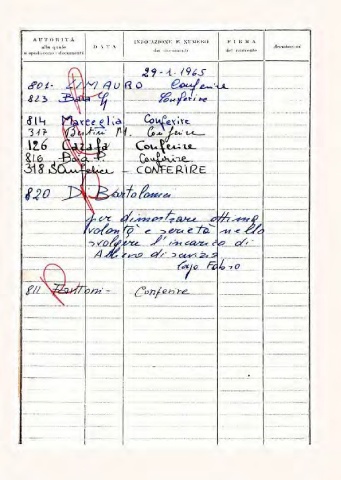 AUTORITÀ DATA INDICAZIONE E NUMERI FIRMA Annotazioni
alla quale dei documenti del ricevente
si spediscono i documenti
29-1-1965
801- MAURO Conferire
823 Boia G Conferire
814 Marceglia Conferire
317 M. Conferire
126 Cazafa Conferire
816 Boia P. Conferire
318 SAnfelice - CONFERIRE
820 Di Bartolomei
per dimostrare ottima
volontà e serietà nello
svolgere l'incarico di
Allievo di servizio
Capo Fabro
811 Fantoni - Conferire